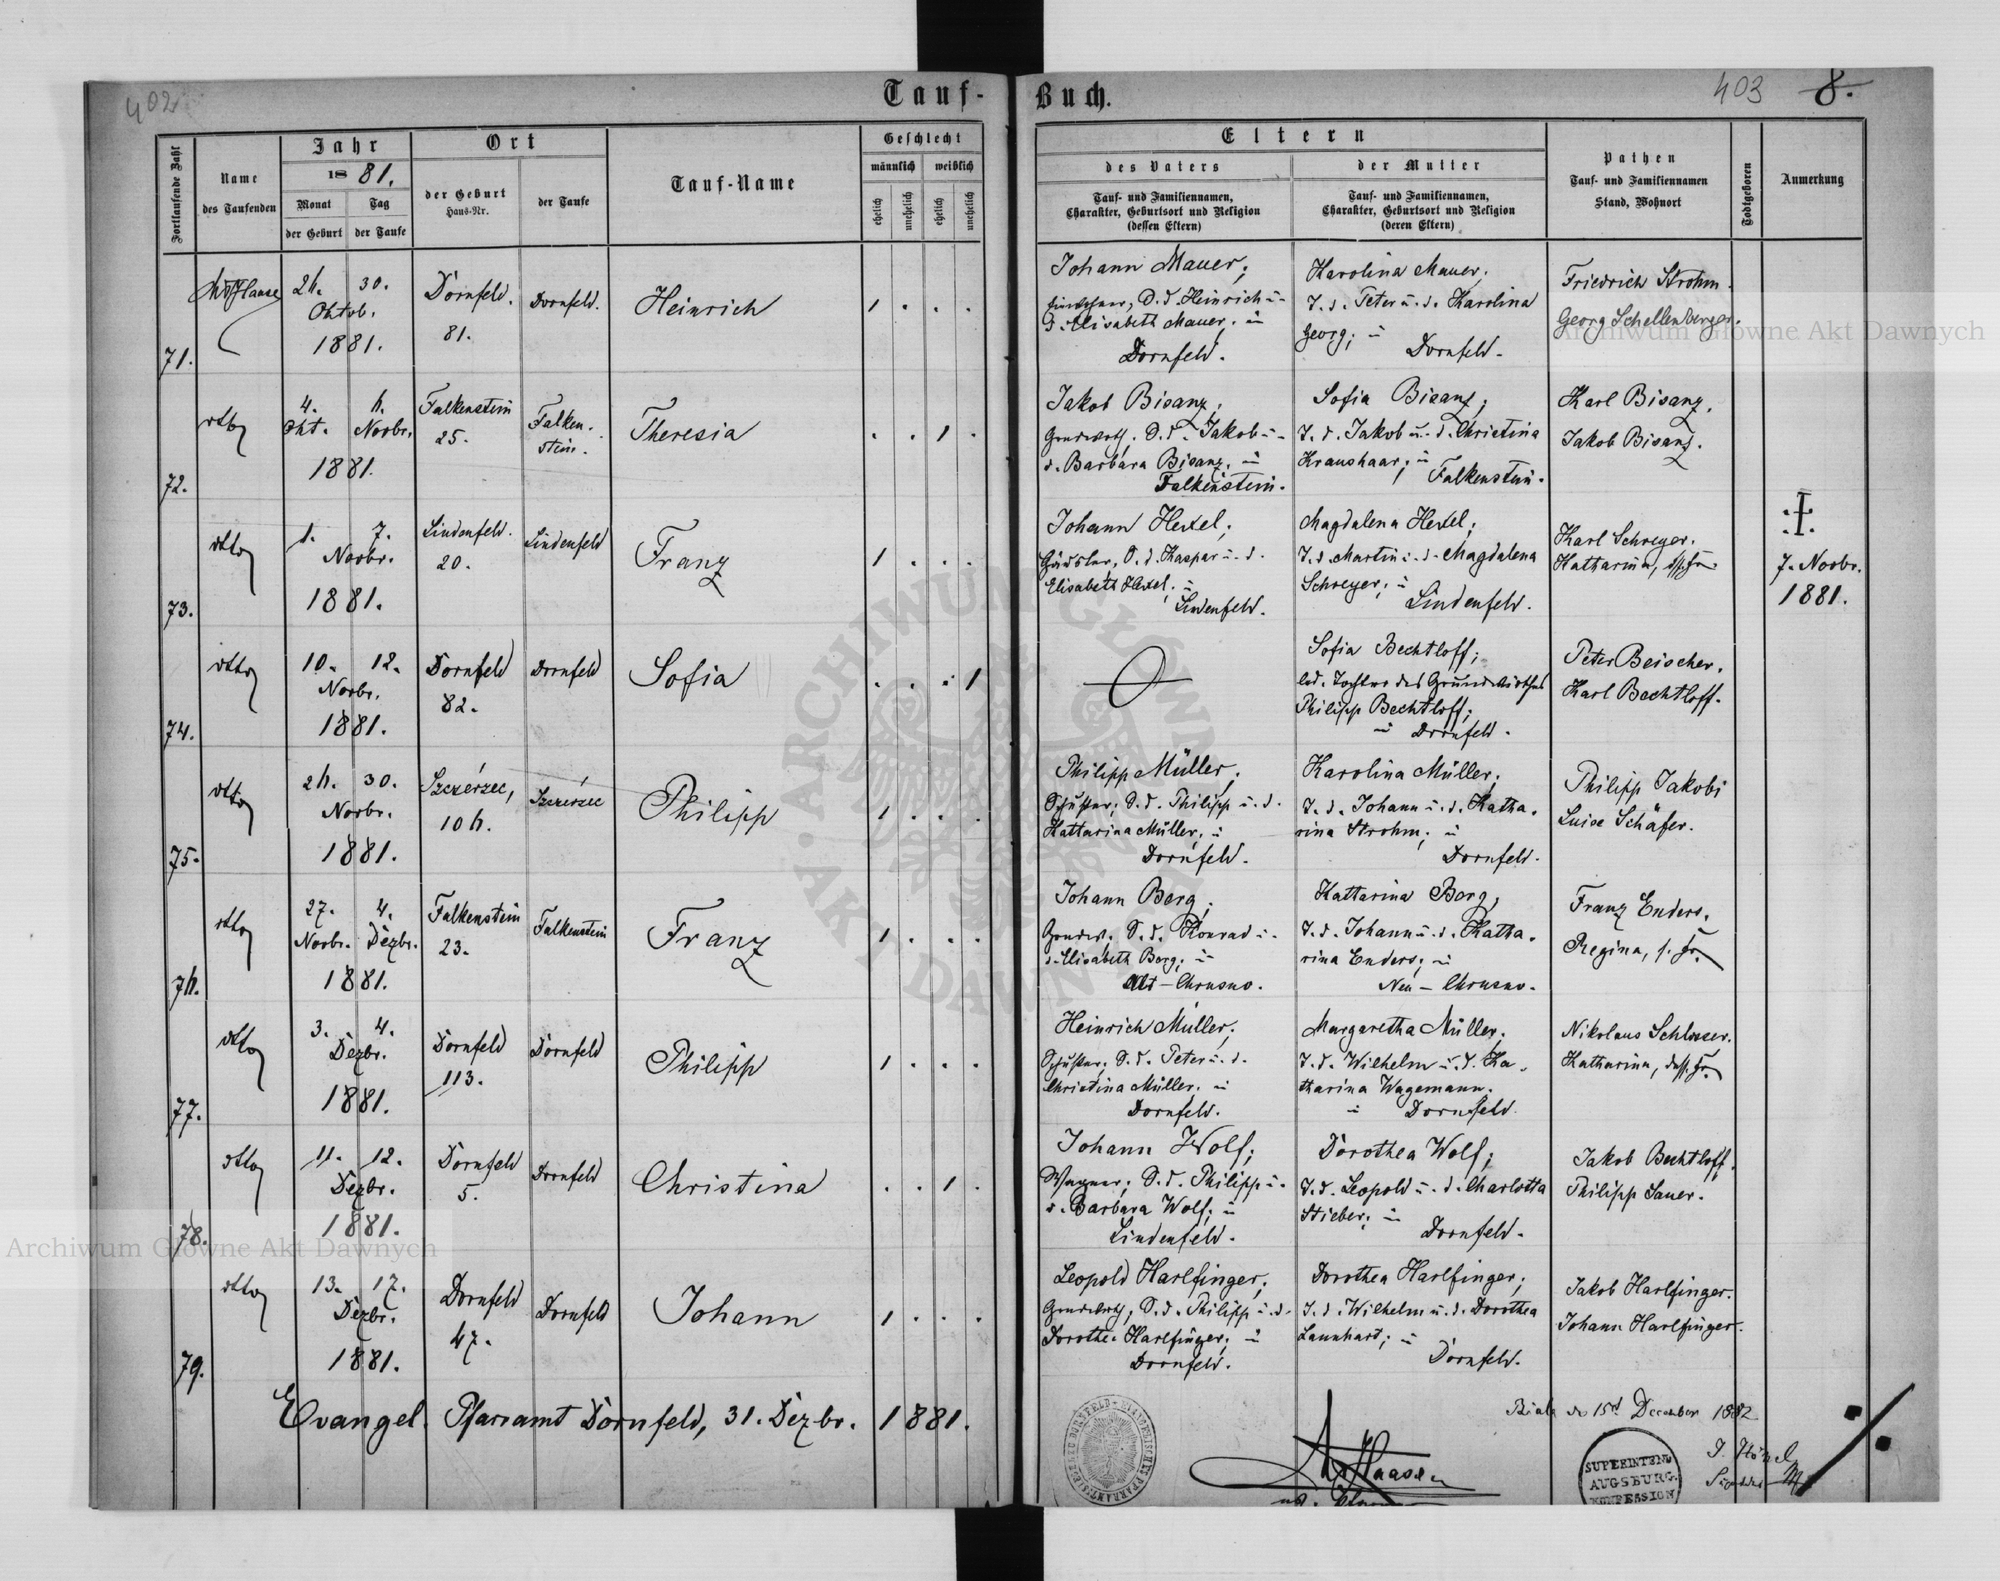 402
Tauf-
Buch.
403 8.
Fortlaufende Zahl
Name
des Taufenden
Jahr
1881.
Monat
der Geburt
Tag
der Taufe
Ort
der Geburt
Haus-Nr.
der Taufe
Tauf-Name
Geschlecht
männlich weiblich
ehelich unehelich ehelich unehelich
Eltern
des Vaters
Tauf- und Familiennamen,
Charakter, Geburtsort und Religion
(dessen Eltern)
der Mutter
Tauf- und Familiennamen,
Charakter, Geburtsort und Religion
(deren Eltern)
Pathen
Tauf- und Familiennamen
Stand, Wohnort
Todtgeboren
Anmerkung
71.
30.
Oktob.
1881.
Dornfeld.
81.
Dornfeld.
Heinrich
1 . . .
Johann Mauer;
Heinrich u.
d. Elisabeth Mauer; in
Dornfeld.
Karolina Mauer;
T. d. Peter u. d. Karolina
Georg; in
Dornfeld.
Friedrich Strohm.
Georg Schellenberger.
72.
dtto
4.
Okt.
Novbr.
1881.
Falkenstein
25.
Falken-
stein.
Theresia
. . 1 .
Jakob Bisanz;
Grundwirth; S. d. Jakob u.
d. Barbara Bisanz; in
Falkenstein.
Sofia Bisanz;
T. d. Jakob u. d. Christina
Kraushaar; in
Falkenstein.
Karl Bisanz.
Jakob Bisanz.
73.
dtto
1. 7.
Novbr.
1881.
Lindenfeld.
20.
Lindenfeld
Franz
1 . . .
Johann Hexel;
Häusler, S. d. Kaspar u. d.
Elisabeth Hexel; in
Lindenfeld.
Magdalena Hexel;
T. d. Martin u. d. Magdalena
Schreyer; in
Lindenfeld.
Karl Schreyer.
Katharina, dss. Fr.
7. Novbr.
1881.
74.
dtto
10. 12.
Novbr.
1881.
Dornfeld
82.
Dornfeld
Sofia
. . . 1
Sofia Bechtloff;
led. Tochter des Grundwirthes
Philipp Bechtloff;
in Dornfeld.
Peter Beischer.
Karl Bechtloff.
75.
dtto
30.
Novbr.
1881.
Szczérzec,
Szczérzec
Philipp
1 . . .
Philipp Müller;
Schuster; S. d. Philipp u. d.
Kattarina Müller; in
Dornfeld.
Karolina Müller;
T. d. Johann u. d. Katha-
rina Strohm; in
Dornfeld.
Philipp Jakobi
Luise Schäfer.
dtto
27. 4.
Novbr. Dezbr.
1881.
Falkenstein
23.
Falkenstein
Franz
1 . . .
Johann Berg;
Grundw. S. d. Konrad u.
d. Elisabeth Berg; in
Alt-Chrusno.
Kattarina Berg;
T. d. Johann u. d. Katha-
rina Enders; in
Neu-Chrusno.
Franz Enders.
Regina, s. Fr.
77.
dtto
3. 4.
Dezbr.
1881.
Dornfeld
113.
Dornfeld
Philipp
1 . . .
Heinrich Müller;
Schuster; S. d. Peter u. d.
Christina Müller; in
Dornfeld.
Margaretha Müller;
T. d. Wilhelm u. d. Ka-
tharina Wagemann.
in Dornfeld.
Nikolaus Schlosser.
Katharina, dess. Fr.
78.
dtto
11. 12.
Dezbr.
1881.
Dornfeld
5.
Dornfeld
Christina
. . 1 .
Johann Wolf;
Wagner; S. d. Philipp u.
d. Barbara Wolf; in
Lindenfeld.
Dorothea Wolf;
T. d. Leopold u. d. Charlotta
Stieber; in
Dornfeld.
Jakob Bechtloff.
Philipp Sauer.
79.
dtto
13. 17.
Dezbr.
1881.
Dornfeld
47.
Dornfeld
Johann
1 . . .
Leopold Harlfinger;
Grundwirth; S. d. Philipp u. d.
Dorothea Harlfinger; in
Dornfeld.
Dorothea Harlfinger;
T. d. Wilhelm u. d. Dorothea
Lannhart; in
Dornfeld.
Jakob Harlfinger.
Johann Harlfinger.
Evangel. Pfarramt Dornfeld, 31. Dezbr. 1881.
Biala den 15t December 1882
SUPERINTEND.
AUGSBURG.
KONFESSION
Archiwum Główne Akt Dawnych
Archiwum Główne Akt Dawnych
ARCHIWUM GŁÓWNE AKT DAWNYCH